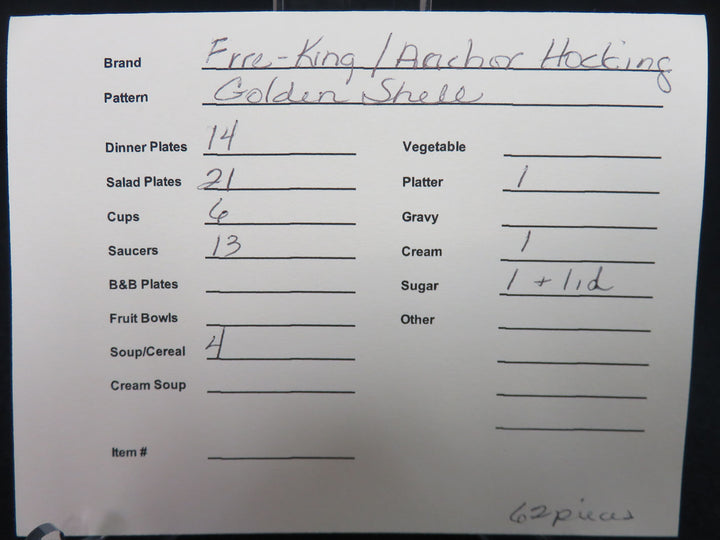 Brand Fire-King / Anchor Hocking
Pattern Golden Shell
Dinner Plates 14
Salad Plates 21
Cups 6
Saucers 13
B&B Plates
Fruit Bowls
Soup/Cereal 4
Cream Soup
Item #
Vegetable
Platter 1
Gravy
Cream 1
Sugar 1 + lid
Other
62 pieces